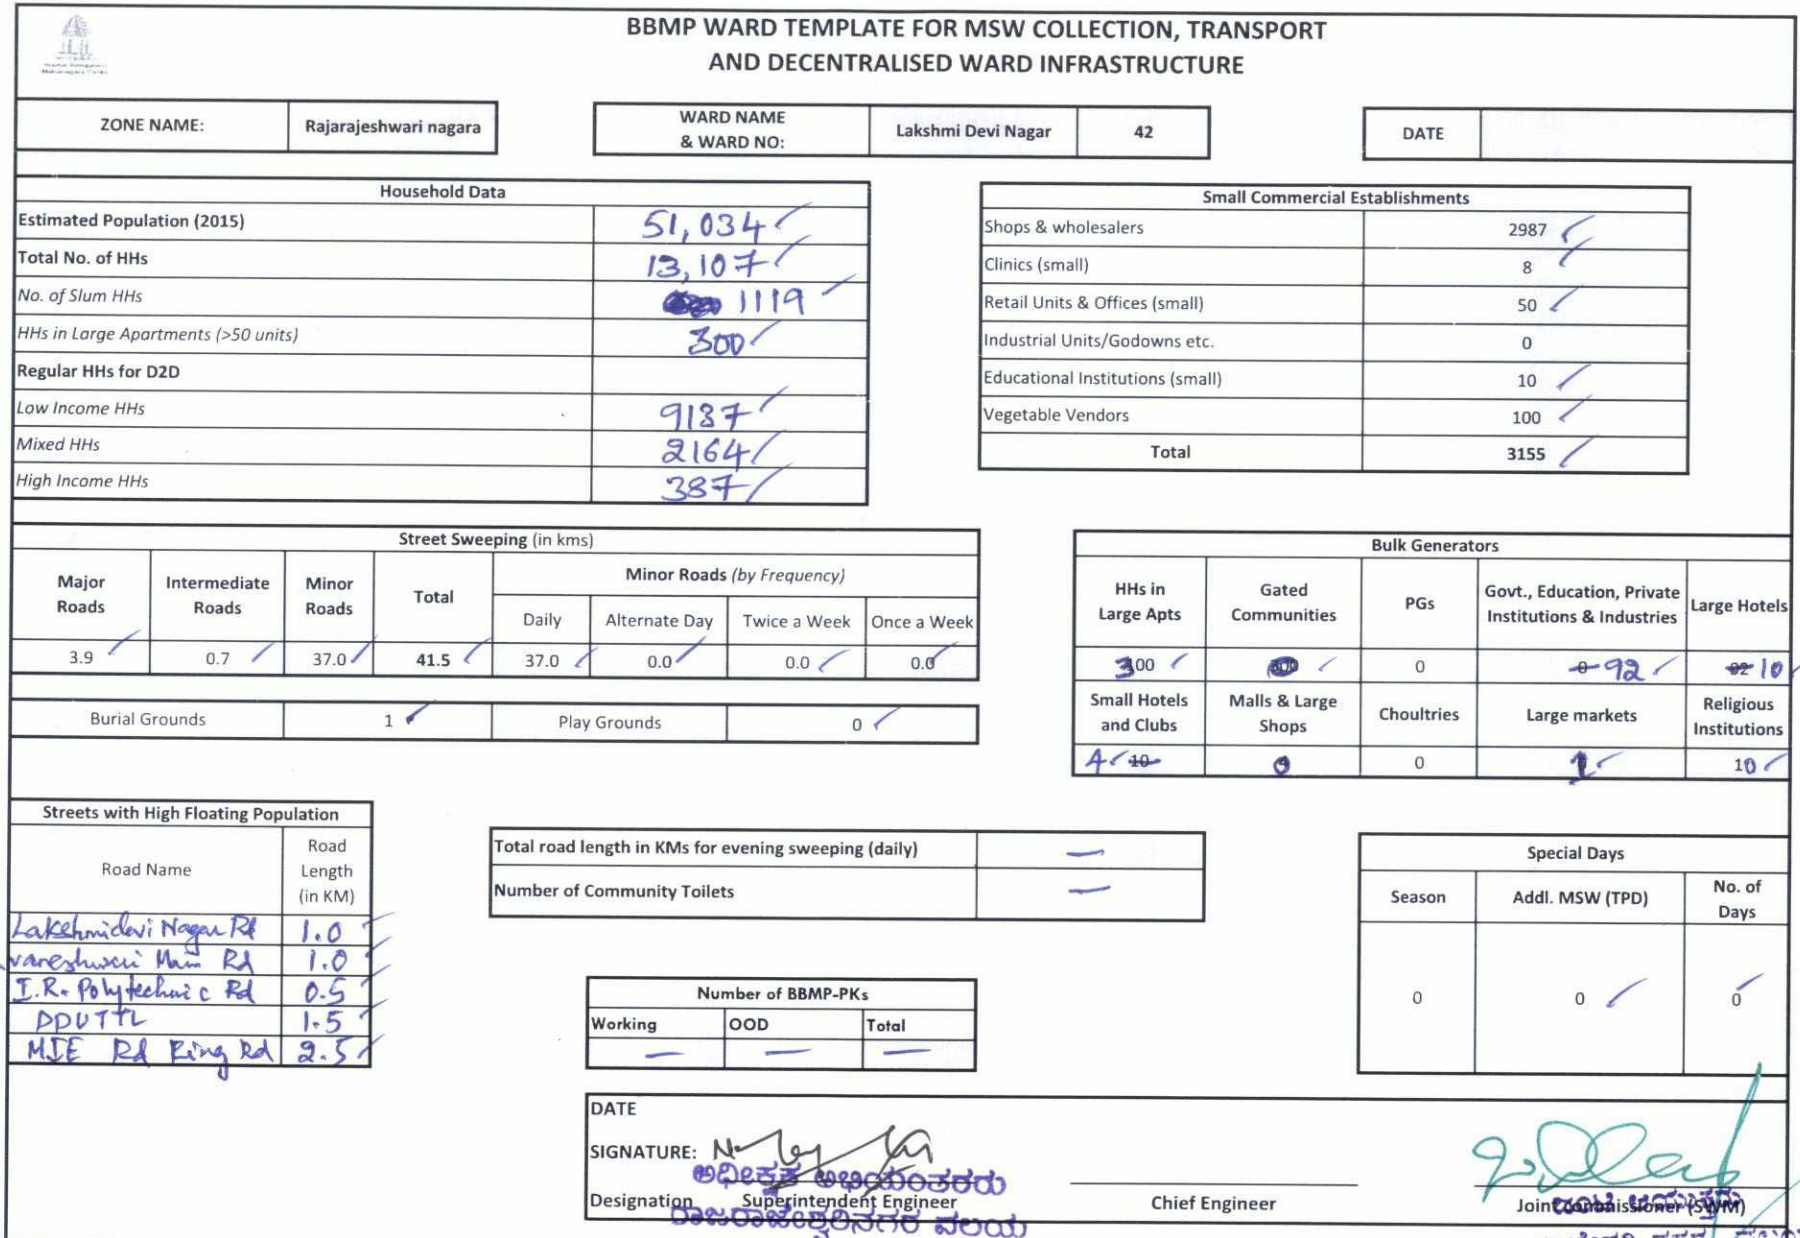 BBMP WARD TEMPLATE FOR MSW COLLECTION, TRANSPORT
AND DECENTRALISED WARD INFRASTRUCTURE
ZONE NAME: Rajarajeshwari nagara
WARD NAME & WARD NO: Lakshmi Devi Nagar 42
DATE
Household Data
Estimated Population (2015) 51,034
Total No. of HHs 13,107
No. of Slum HHs 1119
HHs in Large Apartments (>50 units) 300
Regular HHs for D2D
Low Income HHs 9137
Mixed HHs 2164
High Income HHs 387
Small Commercial Establishments
Shops & wholesalers 2987
Clinics (small) 8
Retail Units & Offices (small) 50
Industrial Units/Godowns etc. 0
Educational Institutions (small) 10
Vegetable Vendors 100
Total 3155
Street Sweeping (in kms)
Major Roads Intermediate Roads Minor Roads Total Minor Roads (by Frequency)
Daily Alternate Day Twice a Week Once a Week
3.9 0.7 37.0 41.5 37.0 0.0 0.0 0.0
Burial Grounds 1 Play Grounds 0
Bulk Generators
HHs in Large Apts Gated Communities PGs Govt., Education, Private Institutions & Industries Large Hotels
300 0 92 10
Small Hotels and Clubs Malls & Large Shops Choultries Large markets Religious Institutions
4 10 0 0 1 10
Streets with High Floating Population
Road Name Road Length (in KM)
Lakshmidevi Nagar Rd 1.0
vareshwari Main Rd 1.0
I.R. Polytechnic Rd 0.5
DDUTTL 1.5
MIE Rd Ring Rd 2.5
Total road length in KMs for evening sweeping (daily) —
Number of Community Toilets —
Number of BBMP-PKs
Working OOD Total
— — —
Special Days
Season Addl. MSW (TPD) No. of Days
0 0 0
DATE
SIGNATURE:
ಅಧೀಕ್ಷಕ ಅಭಿಯಂತರರು
Designation Superintendent Engineer Chief Engineer Joint commissioner (SWM)
ರಾಜರಾಜೇಶ್ವರಿನಗರ ವಲಯ